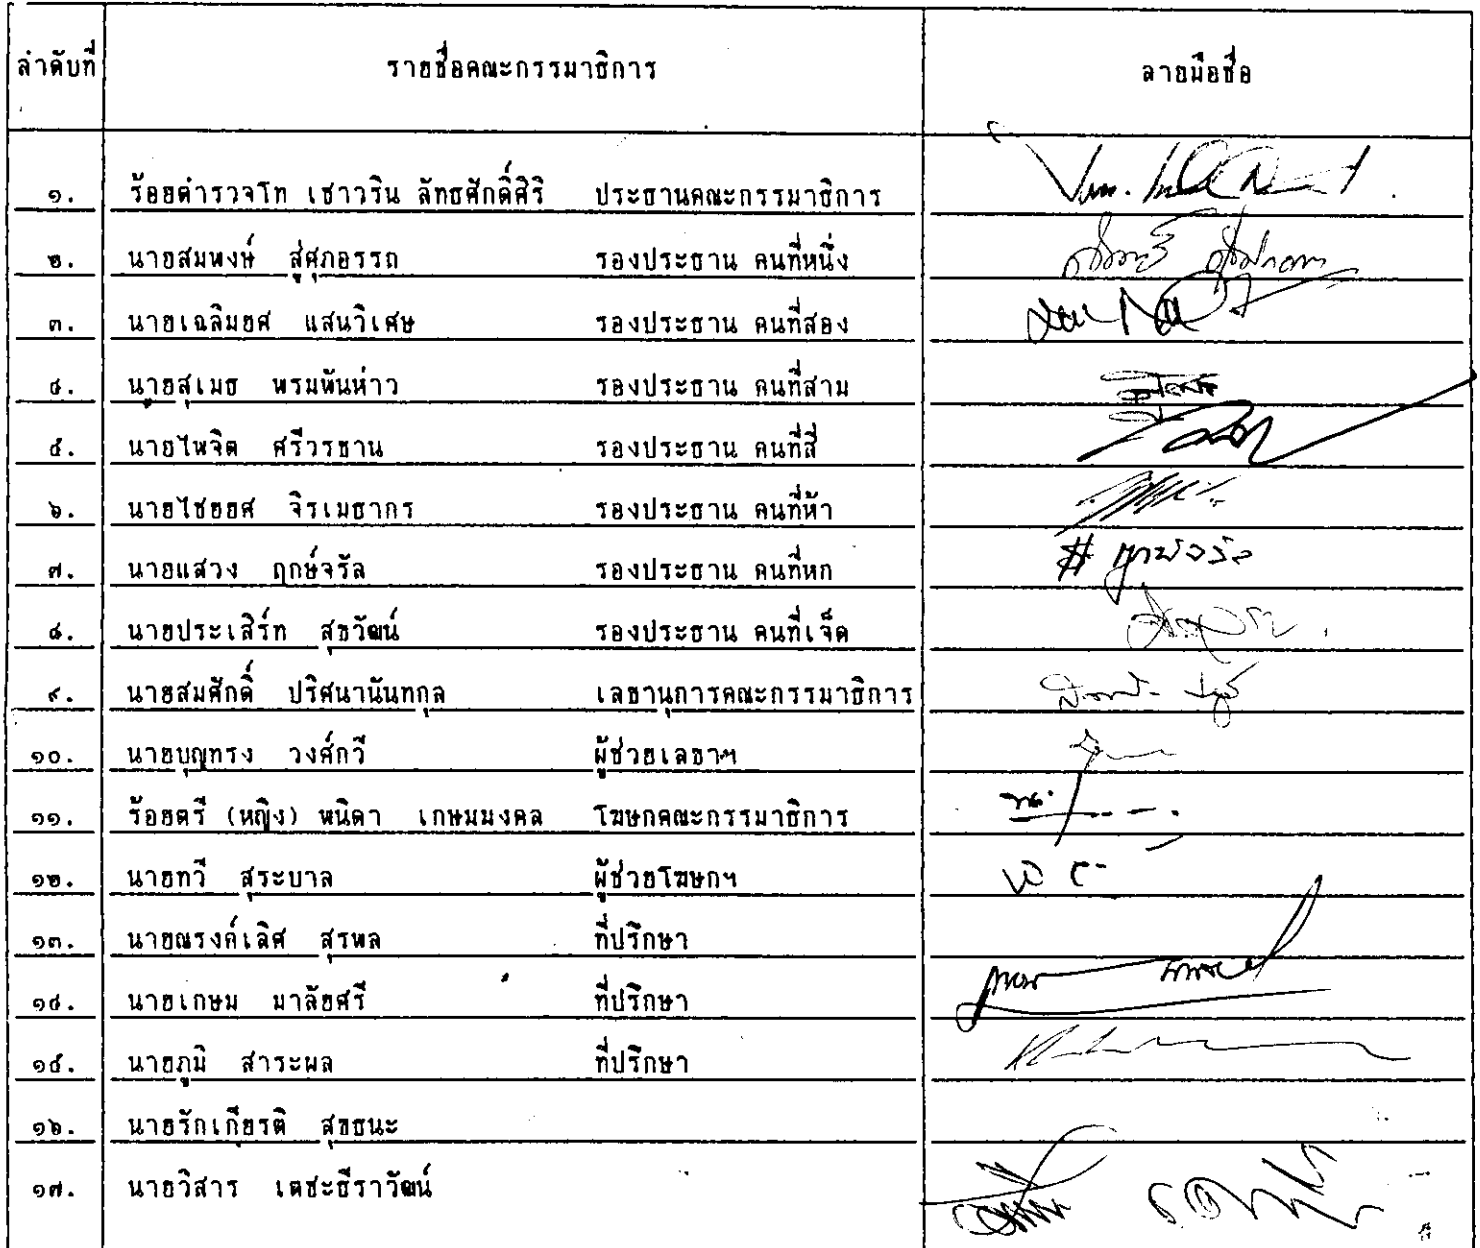 ลำดับที่ รายชื่อคณะกรรมาธิการ ลายมือชื่อ
๑. ร้อยตำรวจโท เชาวริน ลัทธศักดิ์ศิริ ประธานคณะกรรมาธิการ
๒. นายสมพงษ์ สู่ศุภอรรถ รองประธาน คนที่หนึ่ง
๓. นายเฉลิมยศ แสนวิเศษ รองประธาน คนที่สอง
๔. นายสุเมธ พรมพันห่าว รองประธาน คนที่สาม
๕. นายไพจิต ศรีวรขาน รองประธาน คนที่สี่
๖. นายไชยยศ จิรเมธากร รองประธาน คนที่ห้า
๗. นายแสวง ฤกษ์จรัล รองประธาน คนที่หก
๘. นายประเสิร์ท สุขวัฒน์ รองประธาน คนที่เจ็ด
๙. นายสมศักดิ์ ปริศนานันทกุล เลขานุการคณะกรรมาธิการ
๑๐. นายบุญทรง วงศ์กวี ผู้ช่วยเลขาฯ
๑๑. ร้อยตรี (หญิง) พนิดา เกษมมงคล โฆษกคณะกรรมาธิการ
๑๒. นายทวี สุระบาล ผู้ช่วยโฆษกฯ
๑๓. นายณรงค์เลิศ สุรพล ที่ปรึกษา
๑๔. นายเกษม มาลัยศรี ที่ปรึกษา
๑๕. นายภูมิ สาระผล ที่ปรึกษา
๑๖. นายรักเกียรติ สุขธนะ
๑๗. นายวิสาร เตชะธีราวัฒน์